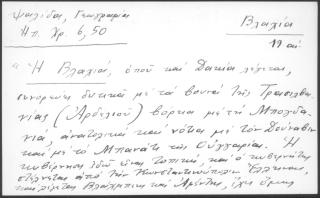 Ψαλίδας, Γεωγραφία
Ηπ. Χρ. 6, 50
Βλαχία
19 αι
"Ἡ Βλαχιά, ὁπού καί Δακία λέγεται,
συνορεύει δυτικά με τα βουνά της Τρανσυλβα-
νίας (Αρδελιού) βόρεια με τη Μπογδα-
νιά, ανατολικά και νότια με τον Δούναβιν
και με το Μπανάτο της Ουγγαρίας. Ἡ
κυβέρνηση εδώ είναι τοπική, και ο κυβερνήτης
στέλνεται από την Κωνσταντινούπολη Έλληνας,
και Αφέντης, έχει όμως